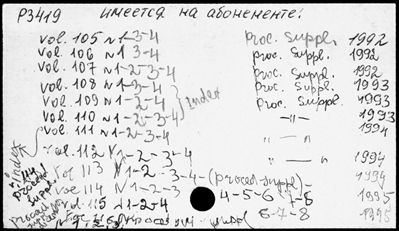 P3419 имеется на абонементе:
vol. 105 N1-3-4 Proc. Suppl. 1992
vol. 106 N1 3-4 proc. Suppl. 1992
vol. 107 N1-2-3-4 proc. Suppl. 1992
vol. 108 N1-3-4 proc. Suppl. 1993
vol. 109 N1-2-4 Index proc. Suppl. 1993
vol. 110 N1-2-3-4 —"— 1993
vol. 111 N1-2-3-4 —"— 1994
vol. 112 N1-2-3-4 —"— 1994
vol 113 N1-2-3-4-(proced-suppl)- 1994
vol 114 N1-2-3 4-5-6 7-8 1995
vol. 115 N1-2-4 6-7-8 1995